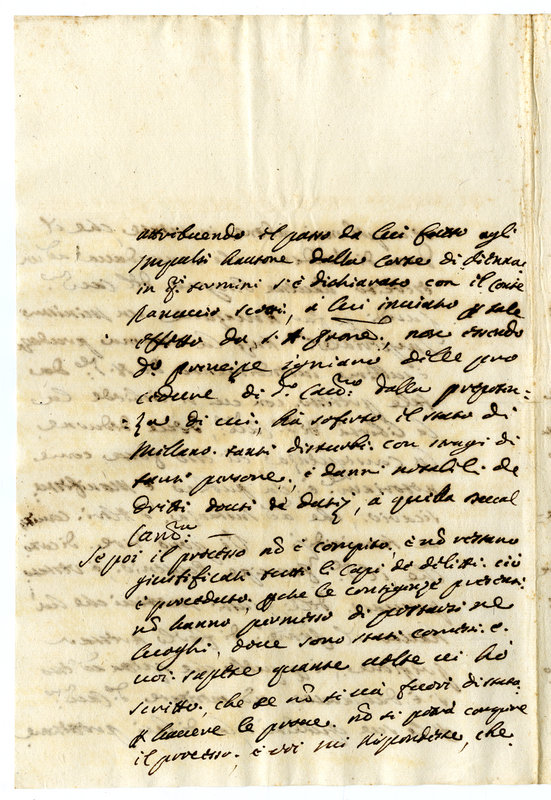 attribuendo il passo da lui fatto agli
impulsi havutone dalla Corte di Vienna
in qti termini s'è dichiarato con il Conte
Panuccio Scotti, à lui inviato p tale
effetto da S. A. non essendo
do Principe ignaro delle pro
cedure di do dalla prepoten=
=za di cui, hà soferto il stato di
Millano tanti disturbi con stragi di
tante persone, è danni notabili de
dritti douti de datij, à quella
Se poi il processo nō è compito, è nō restano
giustificati tutti li capi de delitti, ciò
è proceduto, pche le contigenze presenti
nō hanno permesso di portarsi ne
luoghi, doue sono stati comessi, è
uoi sapete quante uolte ui hò
scritto, che se nō si uà fuori di stato
p hauere le proue, nō si potrà compire
il processo, è uoi mi rispondeste, che